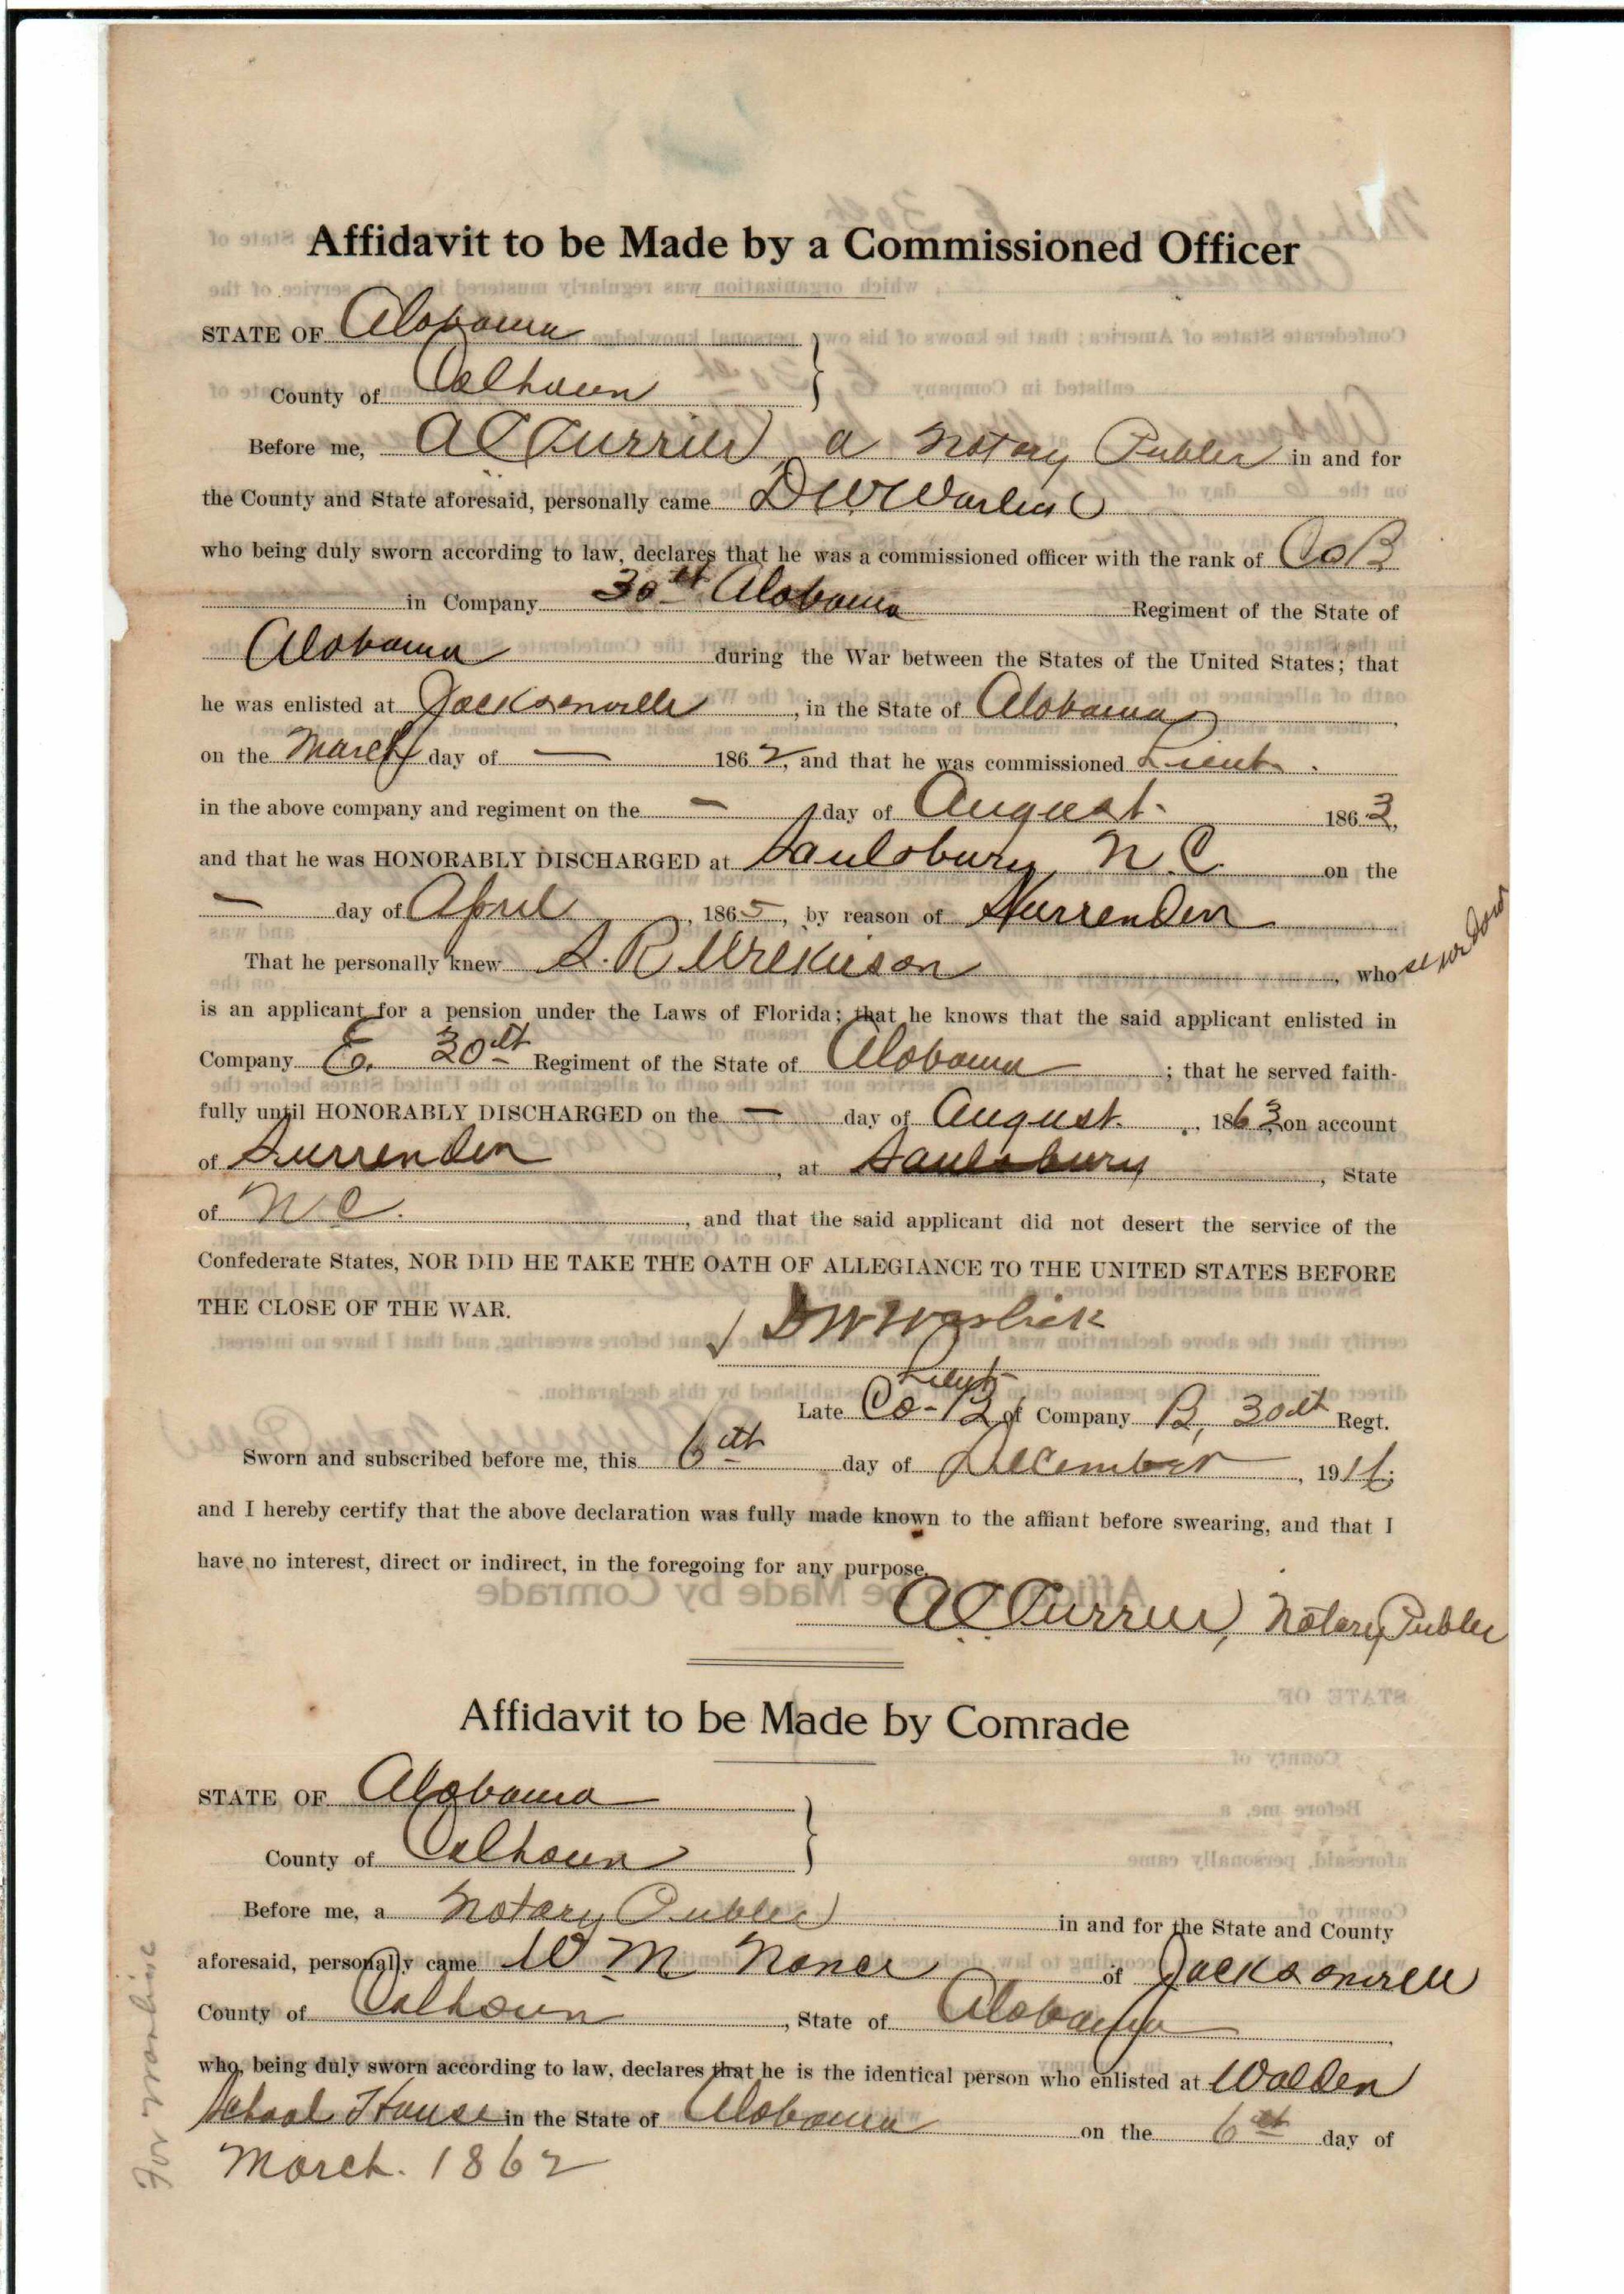 Affidavit to be Made by a Commissioned Officer
STATE OF Alabama
County of Calhoun
Before me, A C Currier, a Notary Public in and for
the County and State aforesaid, personally came D W Warlick
who being duly sworn according to law, declares that he was a commissioned officer with the rank of Co B
in Company 30th Alabama Regiment of the State of
Alabama during the War between the States of the United States; that
he was enlisted at Jacksonville, in the State of Alabama,
on the March day of — 1862, and that he was commissioned Lieut.
in the above company and regiment on the — day of August 1863,
and that he was HONORABLY DISCHARGED at Saulsbury N.C. on the
— day of April, 1865, by reason of Surrender
That he personally knew S. R Wilkinson, who
is an applicant for a pension under the Laws of Florida; that he knows that the said applicant enlisted in
Company E. 30th Regiment of the State of Alabama; that he served faith-
fully until HONORABLY DISCHARGED on the — day of August. 1863, on account
of Surrender, at Saulsbury, State
of N C., and that the said applicant did not desert the service of the
Confederate States, NOR DID HE TAKE THE OATH OF ALLEGIANCE TO THE UNITED STATES BEFORE
THE CLOSE OF THE WAR.
D W Warlick
Lieut
Late Co - B of Company B, 30th Regt.
Sworn and subscribed before me, this 6th day of December, 191
and I hereby certify that the above declaration was fully made known to the affiant before swearing, and that I
have no interest, direct or indirect, in the foregoing for any purpose.
A C Currier, Notary Public
Affidavit to be Made by Comrade
STATE OF Alabama
County of Calhoun
Before me, a Notary Public in and for the State and County
aforesaid, personally came W M Nance of Jacksonville
County of Calhoun, State of Alabama,
who, being duly sworn according to law, declares that he is the identical person who enlisted at Walden
School House in the State of Alabama on the 6th day of
March. 1862